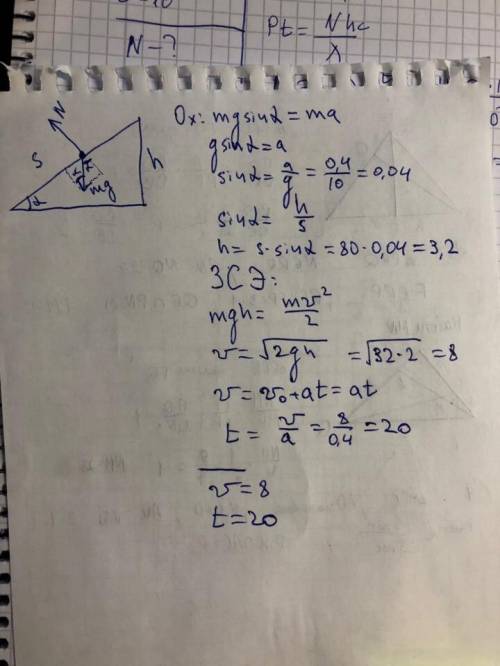 N-?
Pt = Nhc/λ
N
s
α
α
mg
h
α
Ox: mg sinα = ma
g sinα = a
sinα = a/g = 0,4/10 = 0,04
sinα = h/s
h = s·sinα = 80·0,04 = 3,2
ЗСЭ:
mgh = mv²/2
v = √2gh = √32·2 = 8
v = v₀+at = at
t = v/a = 8/0,4 = 20
v = 8
t = 20